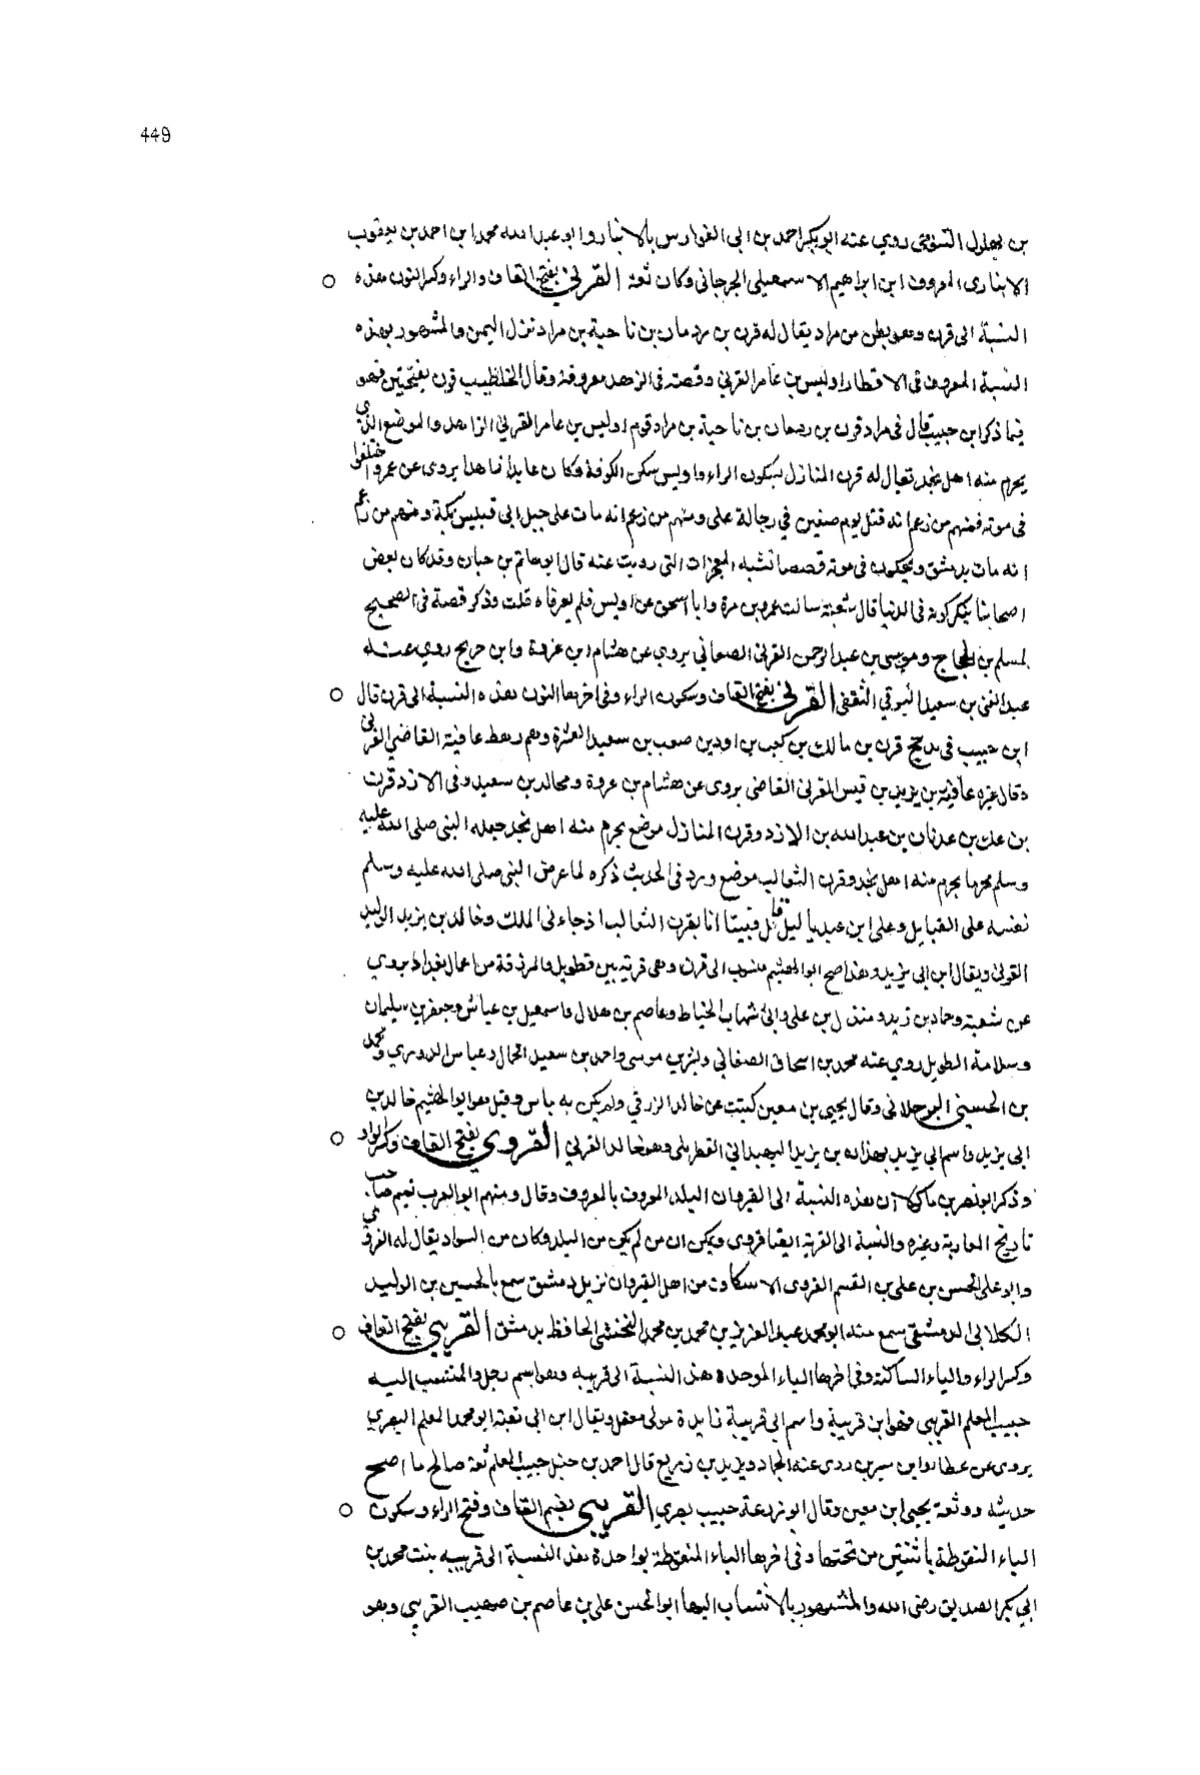 449
بن بهلول التنوخي روي عنه ابو بكر احمد بن ابي الفوارس بالانبار وابو عبد الله محمد ابن احمد بن يعقوب
الانباري المعروف ابن ابراهيم الاسمعيلي الجرجاني وكان ثقة القرني بفتح القاف والراء وكسر النون هذه
النسبة الى قرن وهو بطن من مراد يقال له قرن بن ردمان بن ناجية بن مراد نزل اليمن والمشهور بهذه
النسبة المعروف في الاقطار اويس بن عامر القرني وقصته في الزهد معروفة وقال الخطيب قرن بفتحتين فهو
فيما ذكر ابن حبيب قال في مراد قرن بن ردمان بن ناجية بن مراد قوم اويس بن عامر القرني الزاهد والموضع الذي
يحرم منه اهل نجد يقال له قرن المنازل بسكون الراء واويس سكن الكوفة وكان عابدا زاهدا يروي عن عمر واختلفوا
في موته فمنهم من زعم انه قتل يوم صفين في رجالة علي ومنهم من زعم انه مات على جبل ابي قبيس بمكة ومنهم من زعم
انه مات بدمشق ويحكون في موته قصصا تشبه المعجزات التي رويت عنه قال ابو حاتم بن حبان وقد كان بعض
اصحابنا ينكر كونه في الدنيا قال شعبة سالت عمرو بن مرة وابا اسحق عن اويس فلم يعرفاه قلت وذكر قصة في الصحيح
لمسلم بن الحجاج وموسى بن عبد الرحمن القرني الصنعاني يروي عن هشام بن عروة وابن جريج روي عنه
عبد الغني بن سعيد الثقفي القرني بفتح القاف وسكون الراء وفي اخرها النون هذه النسبة الى قرن قال
ابن حبيب في مذحج قرن بن مالك بن كعب بن اود بن صعب بن سعيد العشيرة وهم رهط عافية القاضي القرني
وقال غيره عافية بن يزيد بن قيس القرني القاضي يروى عن هشام بن عروة ومجالد بن سعيد وفي الازد قرن
بن عك بن عدنان بن عبد الله بن الازد وقرن المنازل موضع يحرم منه اهل نجد جعله النبي صلى الله عليه
وسلم محرما يحرم منه اهل نجد وقرن الثعالب موضع ورد في الحديث ذكره لما عرض النبي صلى الله عليه وسلم
نفسه على القبايل وعلى ابن عبد ياليل قال فبينا انا بقرن الثعالب اذ جاءني الملك وخالد بن يزيد الوليد
القرني ويقال ابن ابي يزيد وهذا اصح ابو الهيثم منسوب الى قرن وهي قرية بين قطربل والمزرفة من اعمال بغداد يروي
عن شعبة وحماد بن زيد ومندل بن علي وابي شهاب الحناط وعاصم بن هلال واسمعيل بن عياش وجعفر بن سليمان
وسلامة الطويل روي عنه محمد بن اسحاق الصغاني وبشر بن موسى واحمد بن سعيد الجمال وعباس الدوري ومحمد
بن الحسين البرجلاني وقال يحيى بن معين كتبت عن خالد المزرفي ولم يكن به باس وقيل هو ابو الهيثم خالد بن
ابي يزيد واسم ابي يزيد بهذان بن يزيد البهبذاني القطربلي وهو خالد القرني القروي بفتح القاف وكسر الواو
وذكر ابو نصر بن ماكولا ان هذه النسبة الى القيروان البلد المعروف بالمعروف وقال ومنهم ابو العرب تميم صاحب
تاريخ المغاربة وغيره والنسبة الى القرية ايضا قروي ويمكن ان من لم يكن من البلد وكان من السواد يقال له القروي
وابو علي الحسن بن علي بن القسم القروي الاسكاف من اهل القيروان نزيل دمشق سمع بالحسين بن الوليد
الكلابي الدمشقي سمع منه ابو محمد عبد العزيز بن محمد بن محمد النخشبي الحافظ بدمشق القريبي بفتح القاف
وكسر الراء والياء الساكنة وفي اخرها الباء الموحدة هذه النسبة الى قريبه وهو اسم رجل والمنتسب اليه
حبيب المعلم القريبي فهو ابن قريبة واسم ابي قريبة زايدة مولى معقل ويقال ابن ابي بقية ابو محمد المعلم البصري
يروى عن عطا وابن سيرين روى عنه الحماد ويزيد بن زريع قال احمد بن حنبل حبيب المعلم ثقة صالح ما اصح
حديثه ووثقه يحيى ابن معين وقال ابو زرعة حبيب بصري القريبي بضم القاف وفتح الراء وسكون
الياء المنقوطة باثنتين من تحتها وفي اخرها الباء المنقوطة بواحدة هذه النسبة الى قريبه بنت محمد بن
ابي بكر الصديق رضي الله والمشهور بالانتساب اليها ابو الحسن علي بن عاصم بن صهيب القريبي وهو